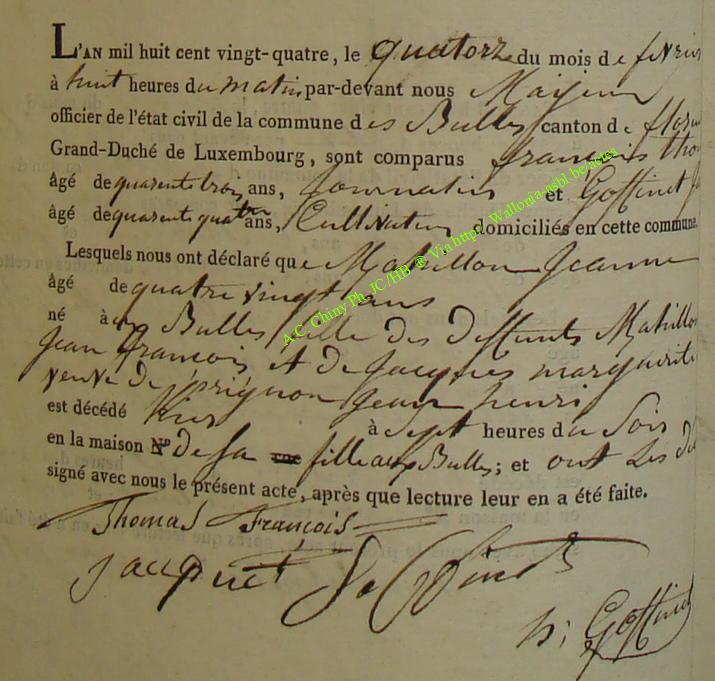 L'AN mil huit cent vingt-quatre, le quatorze du mois de févri
à huit heures du matin par-devant nous Mayeur
officier de l'état civil de la commune des Bulles canton de flor
Grand-Duché de Luxembourg, sont comparus françois tho
âgé de quarente trois ans, journalier et Goffinet J
âgé de quarente quatre ans, Cultivateur domiciliés en cette commune
Lesquels nous ont déclaré que Mabillon Jeanne
âgé de quatre vingt ans
né à aux Bulles fille des deffunts Mabillon
Jean françois et de Jacques marguerite
veuve de prignon jean henri
est décédé hier à sept heures du Soir
en la maison N.º de sa fille aux Bulles; et ont les dé
signé avec nous le présent acte, après que lecture leur en a été faite.
Thomas François
Jacquet J Goffinet
h: Goffinet
A.C. Chiny Ph. JC/HB ® Via http: Wallonia-asbl be actes